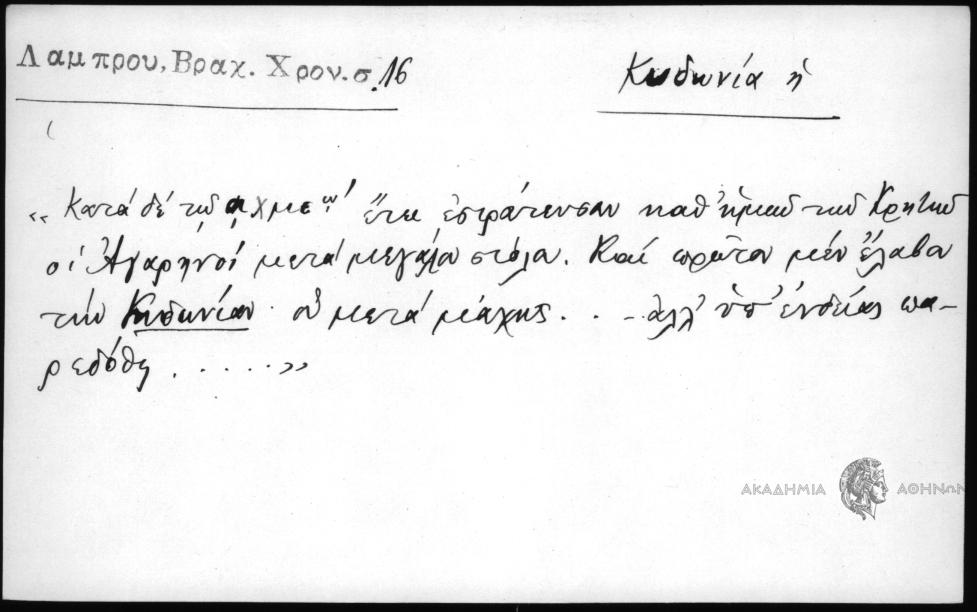 Λαμπρου, Βραχ. Χρον. σ. 16
Κυδωνία ἡ
“ Κατά δέ τῷ αχμε ῳ' ἔτει ἐστράτευσαν καθ' ἡμῶν τῶν Κρητῶν
οἱ Ἀγαρηνοί μετά μεγάλου στόλου. Καί πρῶτον μέν ἔλαβον
τήν Κυδωνίαν οὐ μετά μάχης . . - ἀλλ' ὑπ' ἐνδείας πα-
ρεδόθη . . . . . ”
ΑΚΑΔΗΜΙΑ ΑΘΗΝΩΝ